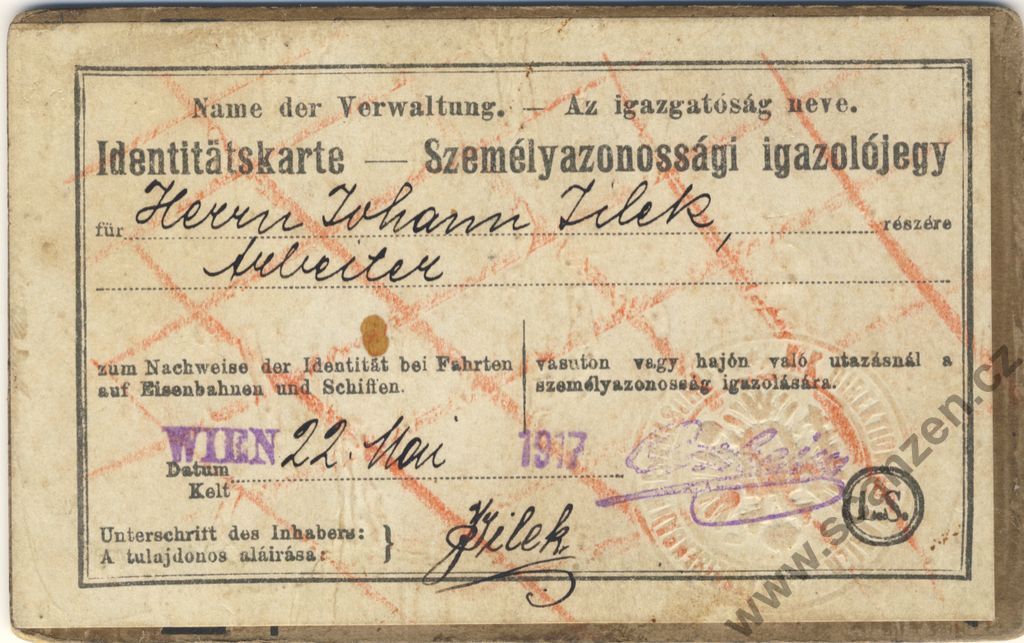 Name der Verwaltung. — Az igazgatóság neve.
Identitätskarte — Személyazonossági igazolójegy
für Herrn Johann Jilek, részére
Arbeiter
zum Nachweise der Identität bei Fahrten
auf Eisenbahnen und Schiffen.
vasuton vagy hajón való utazásnál a
személyazonosság igazolására.
WIEN 22. Mai 1917
Datum
Kelt
L.S.
Unterschrift des Inhabers:
A tulajdonos aláirása:
} J. Jilek.